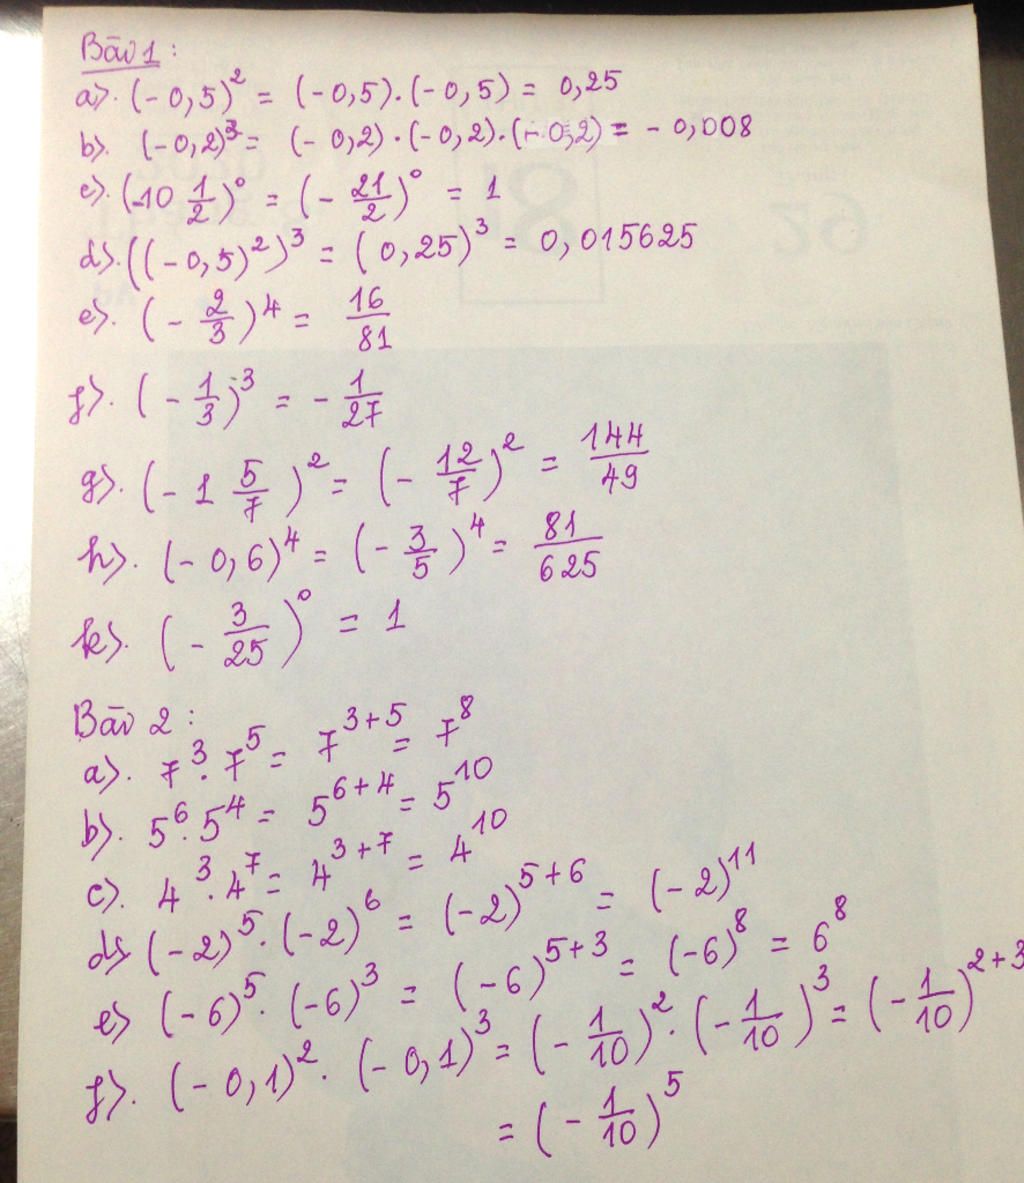 Bài 1 :
a). (-0,5)² = (-0,5).(-0,5) = 0,25
b). (-0,2)³ = (-0,2).(-0,2).(-0,2) = -0,008
c). (-10 1/2)⁰ = (- 21/2)⁰ = 1
d). ((-0,5)²)³ = (0,25)³ = 0,015625
e). (- 2/3)⁴ = 16/81
f). (- 1/3)³ = - 1/27
g). (-1 5/7)² = (- 12/7)² = 144/49
h). (-0,6)⁴ = (- 3/5)⁴ = 81/625
k). (- 3/25)⁰ = 1
Bài 2 :
a). 7³.7⁵ = 7³⁺⁵ = 7⁸
b). 5⁶.5⁴ = 5⁶⁺⁴ = 5¹⁰
c). 4³.4⁷ = 4³⁺⁷ = 4¹⁰
d) (-2)⁵.(-2)⁶ = (-2)⁵⁺⁶ = (-2)¹¹
e) (-6)⁵.(-6)³ = (-6)⁵⁺³ = (-6)⁸ = 6⁸
f). (-0,1)².(-0,1)³ = (- 1/10)².(- 1/10)³ = (- 1/10)²⁺³
= (- 1/10)⁵